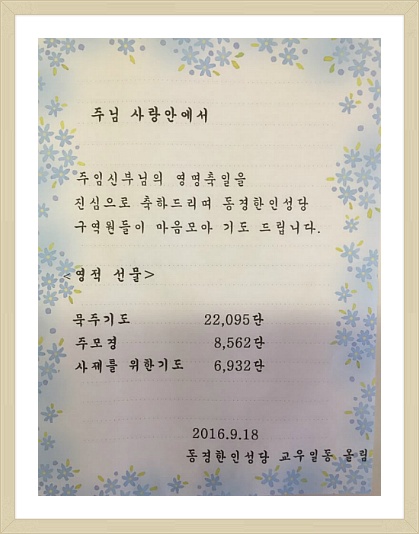 주님 사랑안에서
주임신부님의 영명축일을
진심으로 축하드리며 동경한인성당
구역원들이 마음모아 기도 드립니다.
<영적 선물>
묵주기도 22,095단
주모경 8,562단
사제를 위한기도 6,932단
2016.9.18
동경한인성당 교우일동 올림